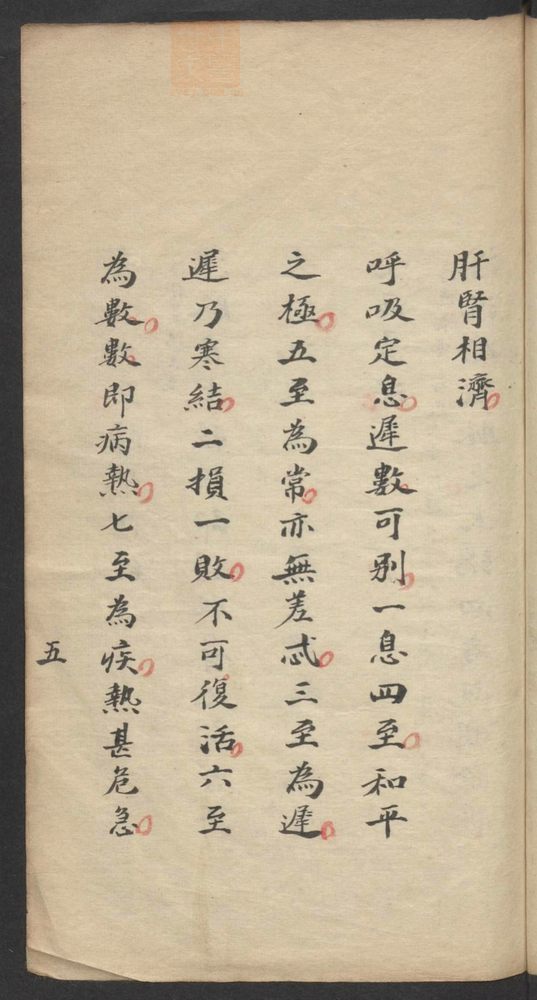 肝腎相濟
呼吸定息遲數可別一息四至和平
之極五至為常亦無差忒三至為遲
遲乃寒結二損一敗不可復活六至
為數數即病熱七至為疾熱甚危急
五